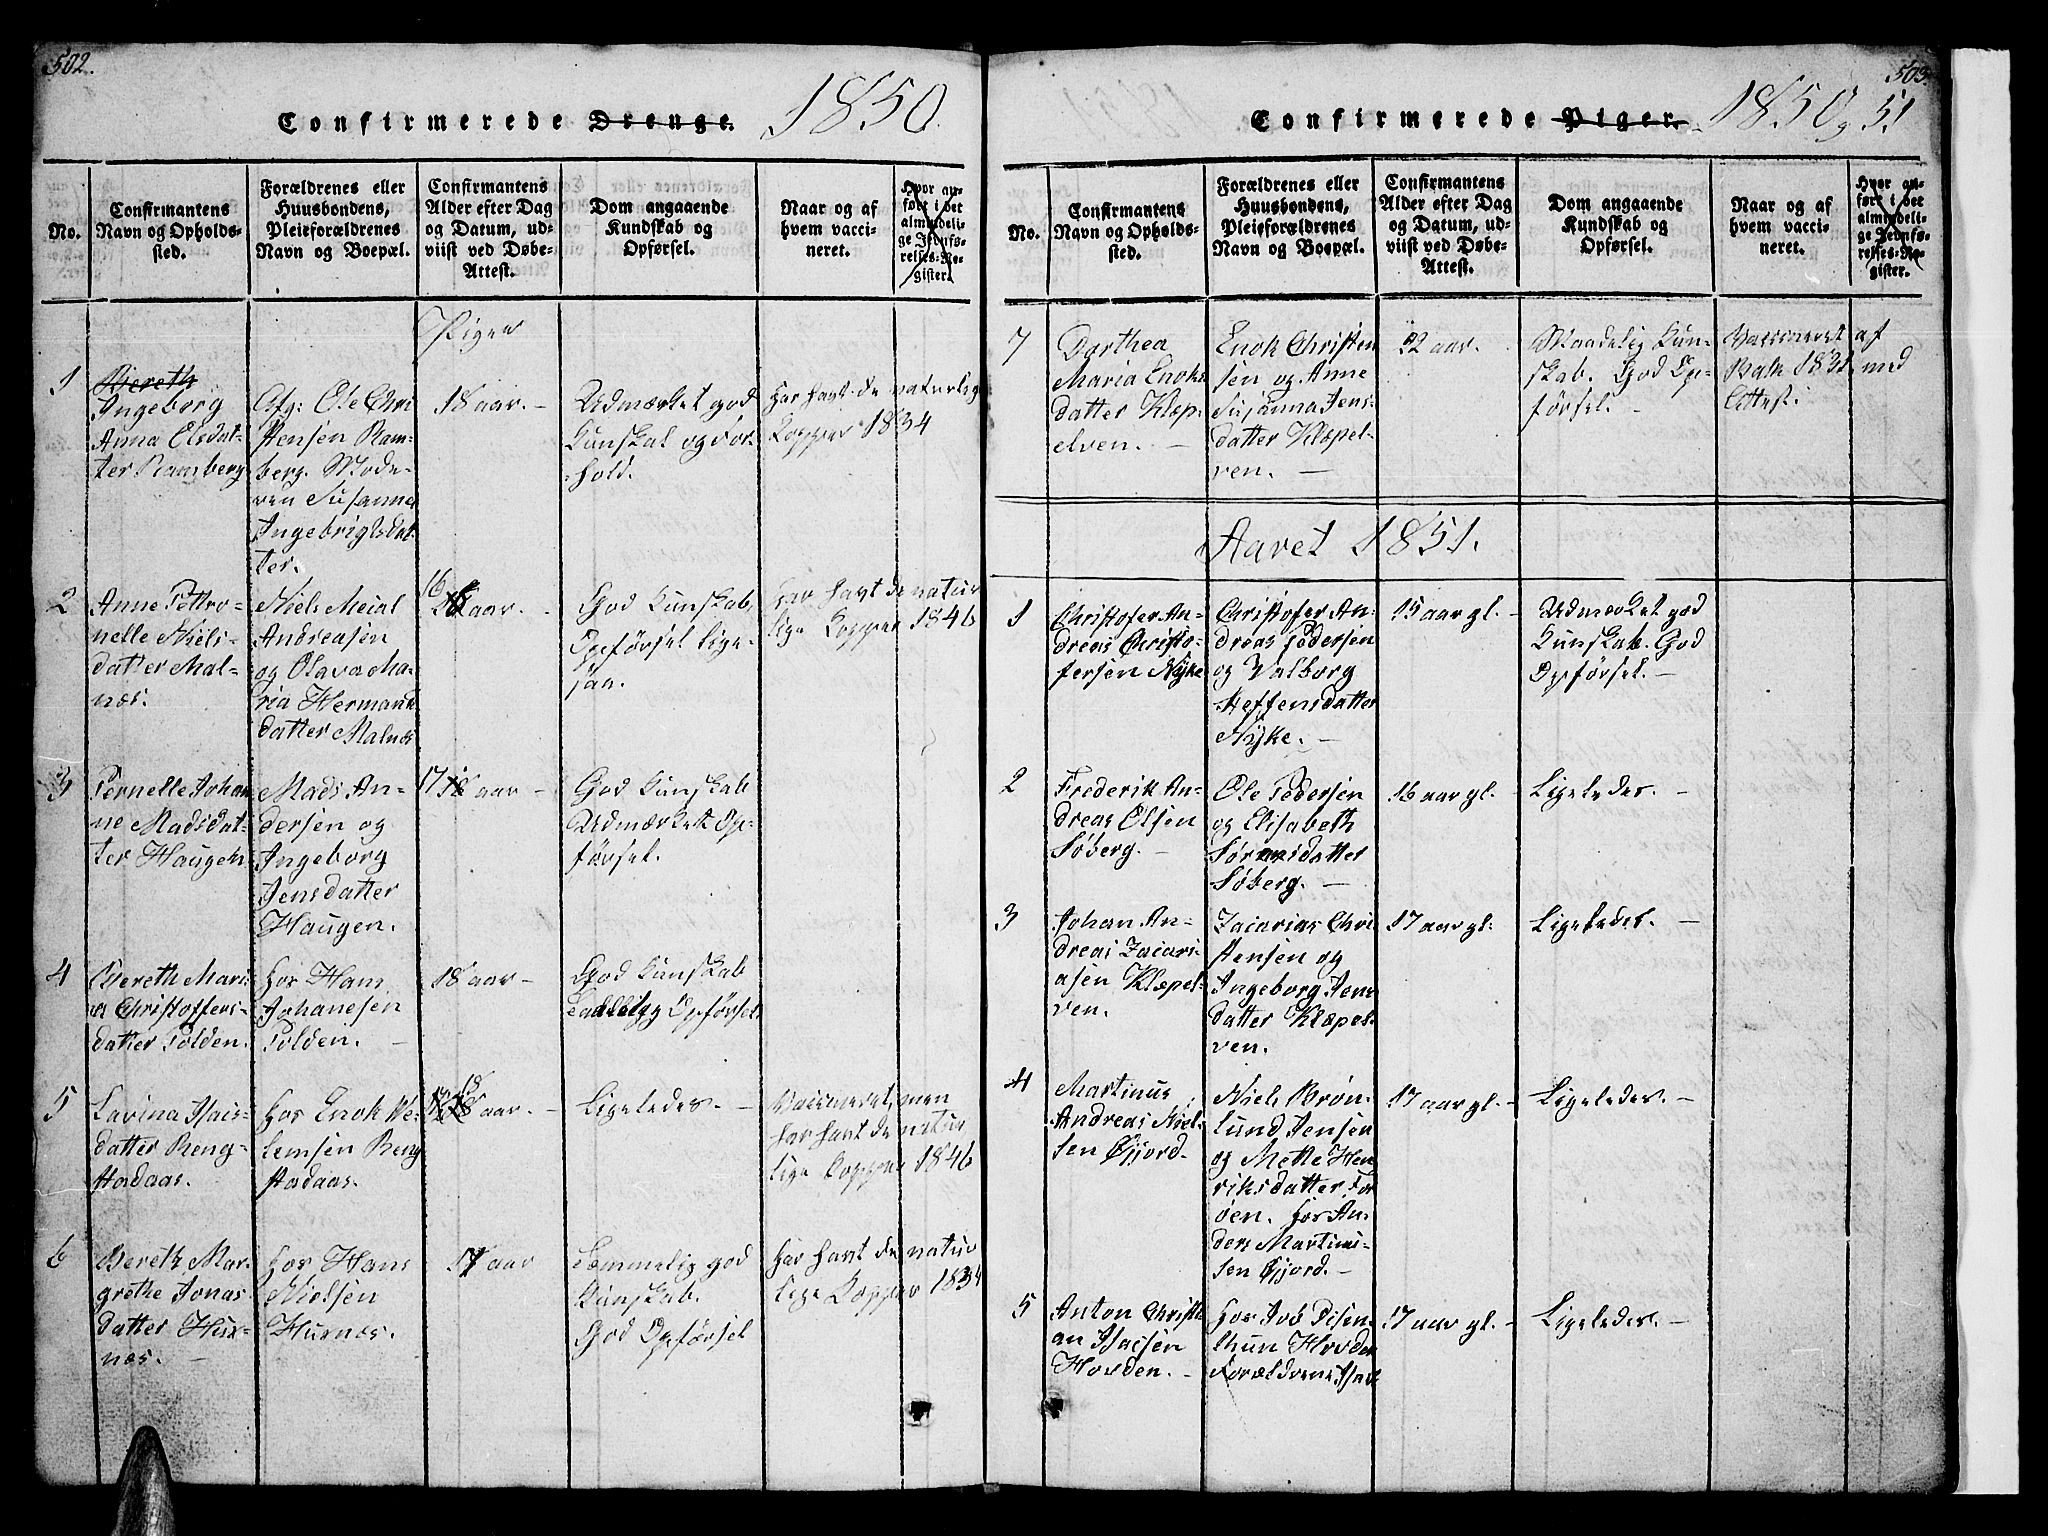 502.
Confirmerede Drenge. 1850
No.
Confirmantens
Navn og Opholds-
sted.
Forældrenes eller
Huusbondens,
Pleieforældrenes
Navn og Boepæl.
Confirmantens
Alder efter Dag
og Datum, ud-
viist ved Døbe-
Attest.
Dom angaaende
Kundskab og
Opførsel.
Naar og af
hvem vacci-
neret.
Hvor an-
ført i det
almindeli-
ge Jevnfø-
relses-Re-
gister.
Piger
1
Bereth
Ingeborg
Anna Olsdat-
ter Ramsberg
Afg: Ole Chri
stensen Ram-
berg. Mode-
ren Susanna
Ingebrigtsdat
ter.
18 aar. -
Udmærket god
Kunskab og For
hold.
Har havt de naturlig
Kopper 1834
2
Anne Petro-
nelle Niels-
datter Mal-
næs.
Niels Meial
Andreasen
og Olava Ma-
ria Hermans
datter Malnæs
16
aar. -
God Kunskab,
Opførsel lige-
saa.
Har havt de natur
lige Kopper 1846
3
Pernelle Johan
ne Madsdat-
ter Haugen
Mads An-
dersen og
Ingeborg
Jensdatter
Haugen.
17 18 aar -
God Kunskab
Udmærket Op-
førsel.
4
Bereth Mari
a Christoffers-
datter Polden.
Hos Hans
Johanesen
Polden. -
18 aar -
God Kunskab
Opførsel
5
Lavina Isacs
datter Reng-
stadaas.
Hos Enok We-
lemsen Reng
stadaas.
18 aar. -
Ligeledes. -
Vaccineret, men
har havt de natur
lige Kopper 1846
6
Bereth Mar-
grethe Jonas
datter Hur-
næs. -
Hos Hans
Nielsen
Hurnæs.
17 aar
Temmelig god
Kunskab.
God Opførsel
Har havt de natur
lige Kopper 1834
503.
Confirmerede Piger. 1850 og 51
No.
Confirmantens
Navn og Opholds-
sted.
Forældrenes eller
Huusbondens,
Pleieforældrenes
Navn og Boepæl.
Confirmantens
Alder efter Dag
og Datum, ud-
viist ved Døbe-
Attest.
Dom angaaende
Kundskab og
Opførsel.
Naar og af
hvem vacci-
neret.
Hvor an-
føre i det
almindeli-
ge Jevnfø-
relses-Re-
gister.
7
Dorthea
Maria Enoks
datter Klæp-
elven. -
Enok Christen
sen og Anne
Susanna Jens-
datter Klæpel-
ven. -
22 aar. -
Maadelig Kun-
skab. God Op-
førsel. -
Vaccineret af
1831 med
Attest.
Aaret 1851.
1
Christofer An-
dreas Christo-
fersen Nyke
Christofer An-
dreas Pedersen
og Valborg
Steffensdatter
Nyke. -
15 aar gl. -
Udmærket god
Kunskab. God
Opførsel. -
2
Frederik An-
dreas Olsen
Søberg. -
Ole Pedersen
og Elisabeth
Sørensdatter
Søberg. -
16 aar gl. -
Ligeledes. -
3
Johan An-
dreas Zacari-
asen Klæpel-
ven.
Zacarias Chri
stensen og
Ingeborg Jens
datter Klæpel-
ven.
17 aar gl. -
Ligeledes. -
4
Martinus
Andreas Niel-
sen Gjord.
Niels Brøn-
lund Jensen
og Mette Hen
riksdatter For
øen. Hos An-
ders Martinus-
sen Gjord. -
17 aar gl. -
Ligeledes. -
5
Anton Christi-
an Isacsen
Hovden. -
Hos
Hovden
Forældrene Isac
17 aar gl. -
Ligeledes. -